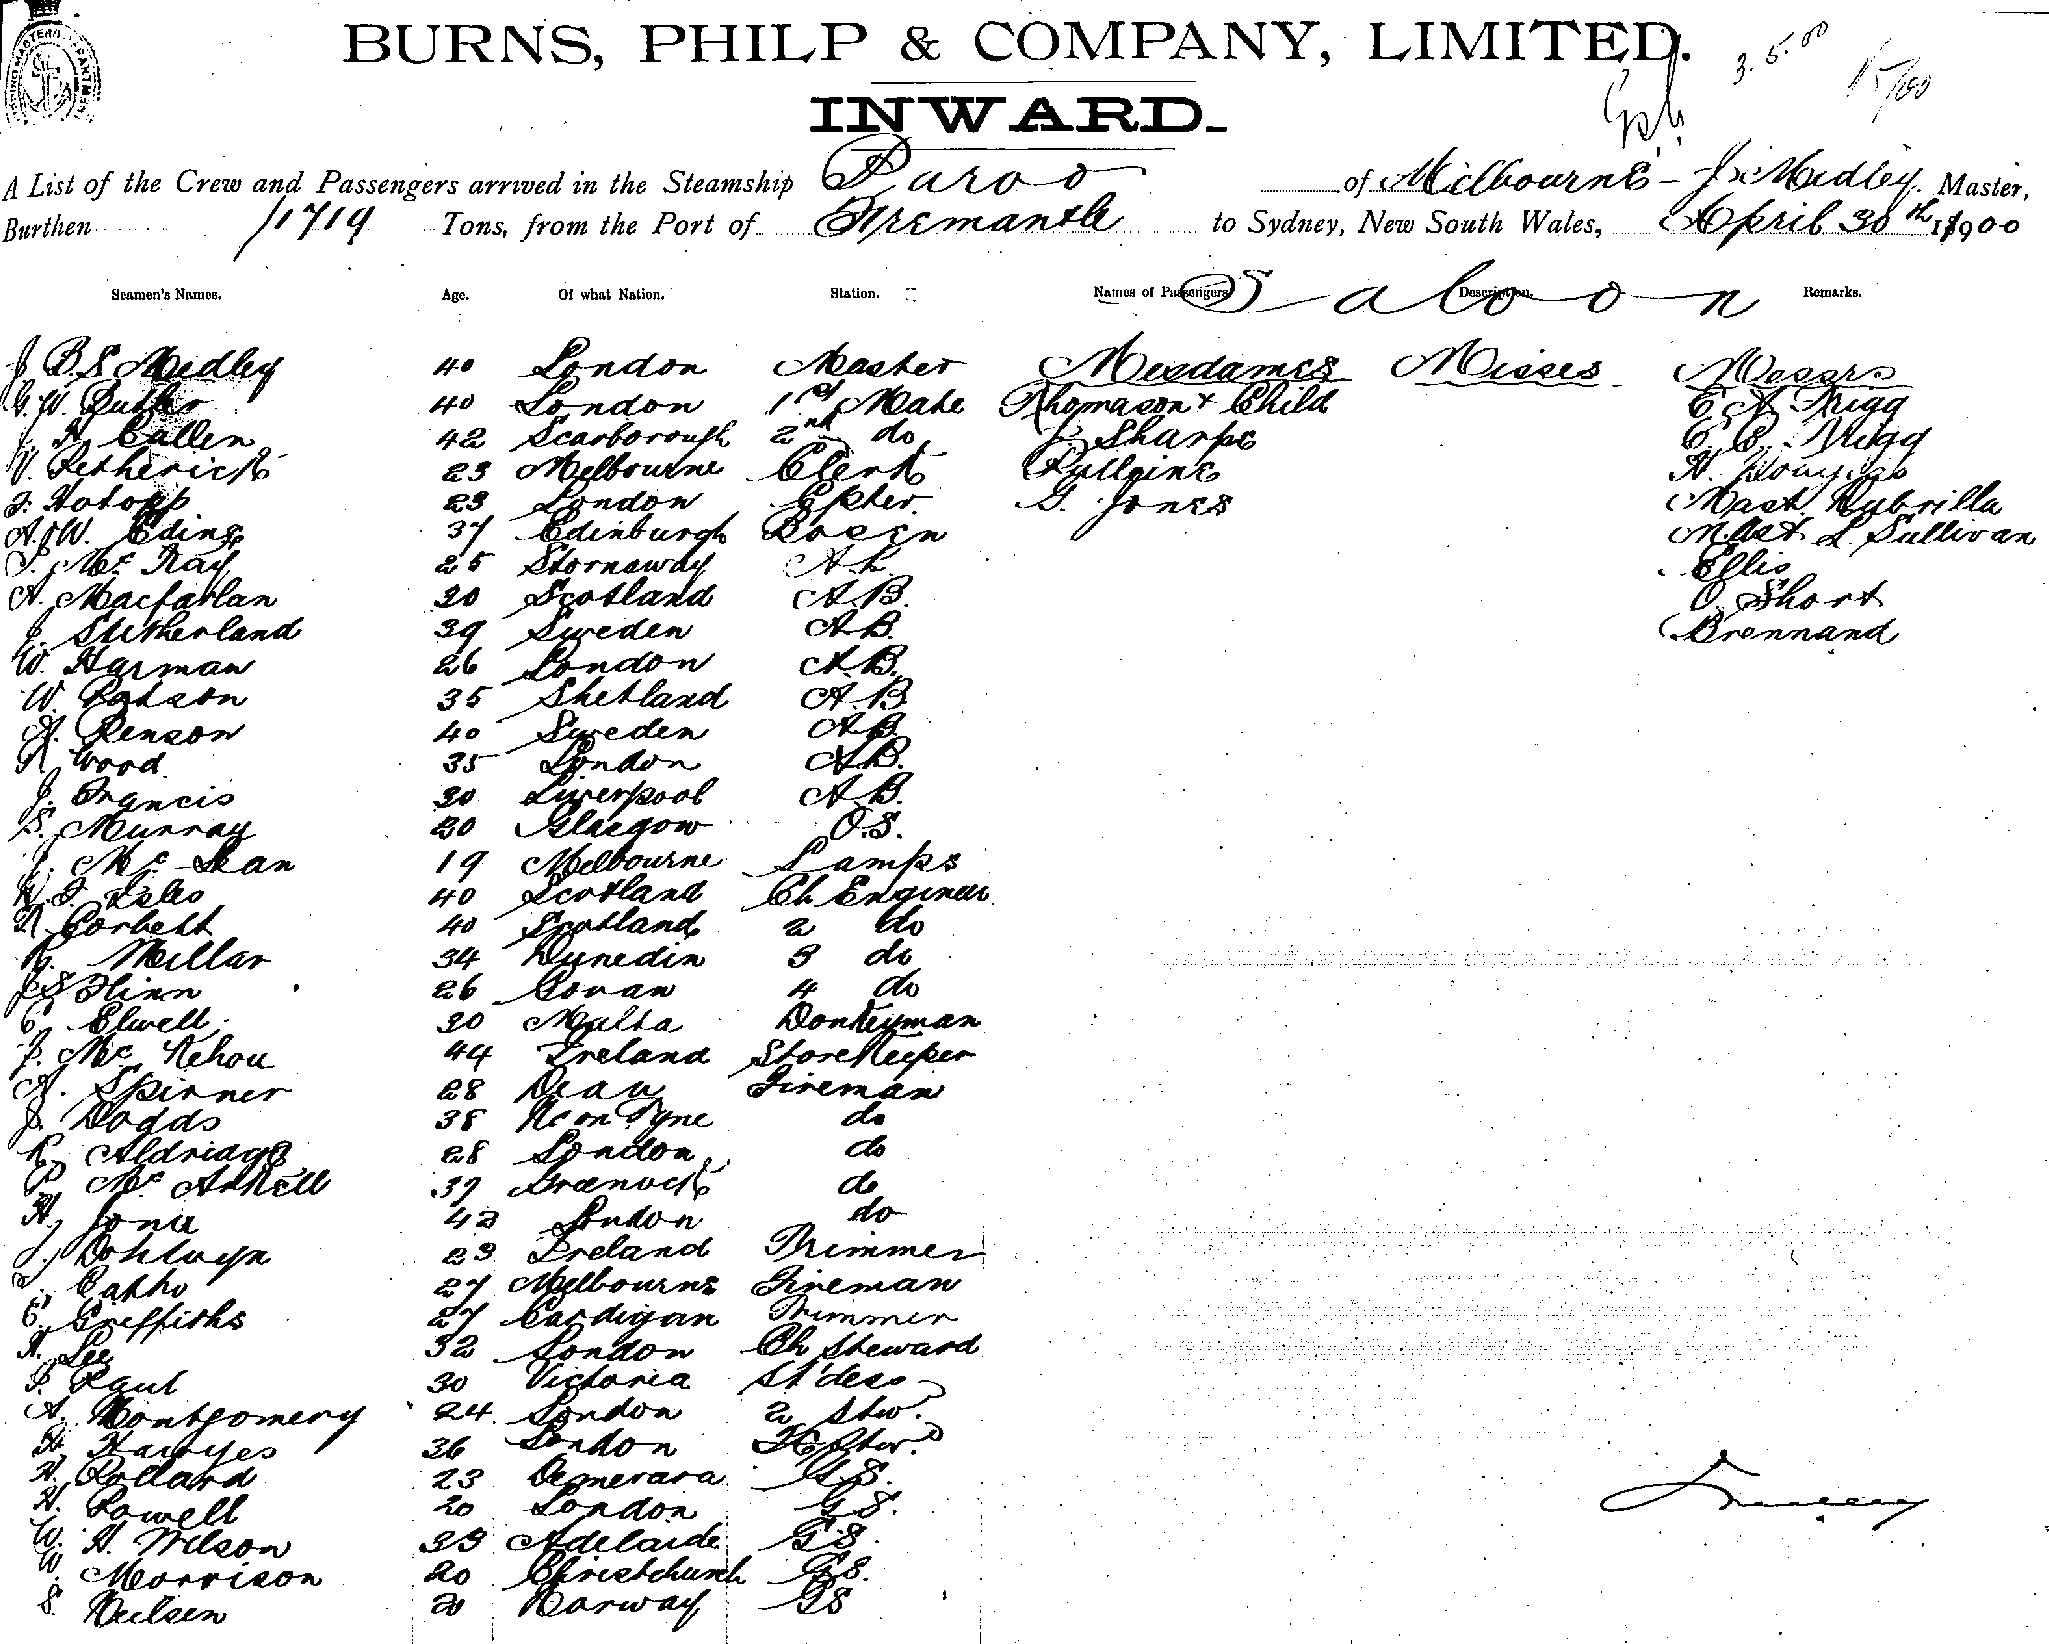 BURNS, PHILP & COMPANY, LIMITED.
3.5.00
INWARD.
A List of the Crew and Passengers arrived in the Steamship Paroo of Melbourne - J. Medley Master,
Burthen 1719 Tons, from the Port of Fremantle to Sydney, New South Wales, April 30th 1900
Seamen's Names. Age. Of what Nation. Station. Names of Passengers Description. Remarks.
Saloon
J B.S Medley 40 London Master Mesdames Misses Messrs
G.W. Butler 40 London 1st Mate Thomason & Child E A Trigg
H Cullen 42 Scarborough 2nd do Sharpe E C. Trigg
V. Petherick 23 Melbourne Clerk Pulleine H.
Hotopp 23 London G. Jones Mast.
A.W. Edins 37 Edinburgh Bosen Mast L Sullivan
Mc Kay 25 Stornoway Ellis
A. Macfarlan 30 Scotland A.B. O. Short
J. Sutherland 39 Sweden A.B. Brennand
W. Harman 26 London A.B.
W. Robson 35 Shetland A.B
A. Benson 40 Sweden A.B.
Wood 35 London A.B.
J. Francis 30 Liverpool A.B.
S. Murray 20 Glasgow O.S.
J. Mc Lean 19 Melbourne Lamps
40 Scotland Ch Engineer
Corbett 40 Scotland 2 do
Millar 34 Dunedin 3 do
J S Flinn 26 Govan 4 do
C. Elwell 30 Malta Donkeyman
J. Mc Kehou 44 Ireland Storekeeper
A. Spinner 28 Fireman
J. Dodds 38 Nc on Tyne do
Aldridge 28 London do
P Mc Askell 39 Greenock do
H. London do
J. 23 Ireland Trimmer
27 Melbourne Fireman
C. Griffiths 27 Cardigan Trimmer
A. Lee 32 London Ch Steward
Paul 30 Victoria St'dess
A. Montgomery 24 London 2 Stw.
H. Hawyes 36 London Stw.
H. Pollard 23 Demerara G.S.
H. Powell 20 London G S.
W. H. Wilson 23 Adelaide G.S.
W Morrison 20 Christchurch G.S.
S. Neilsen 20 Norway GS